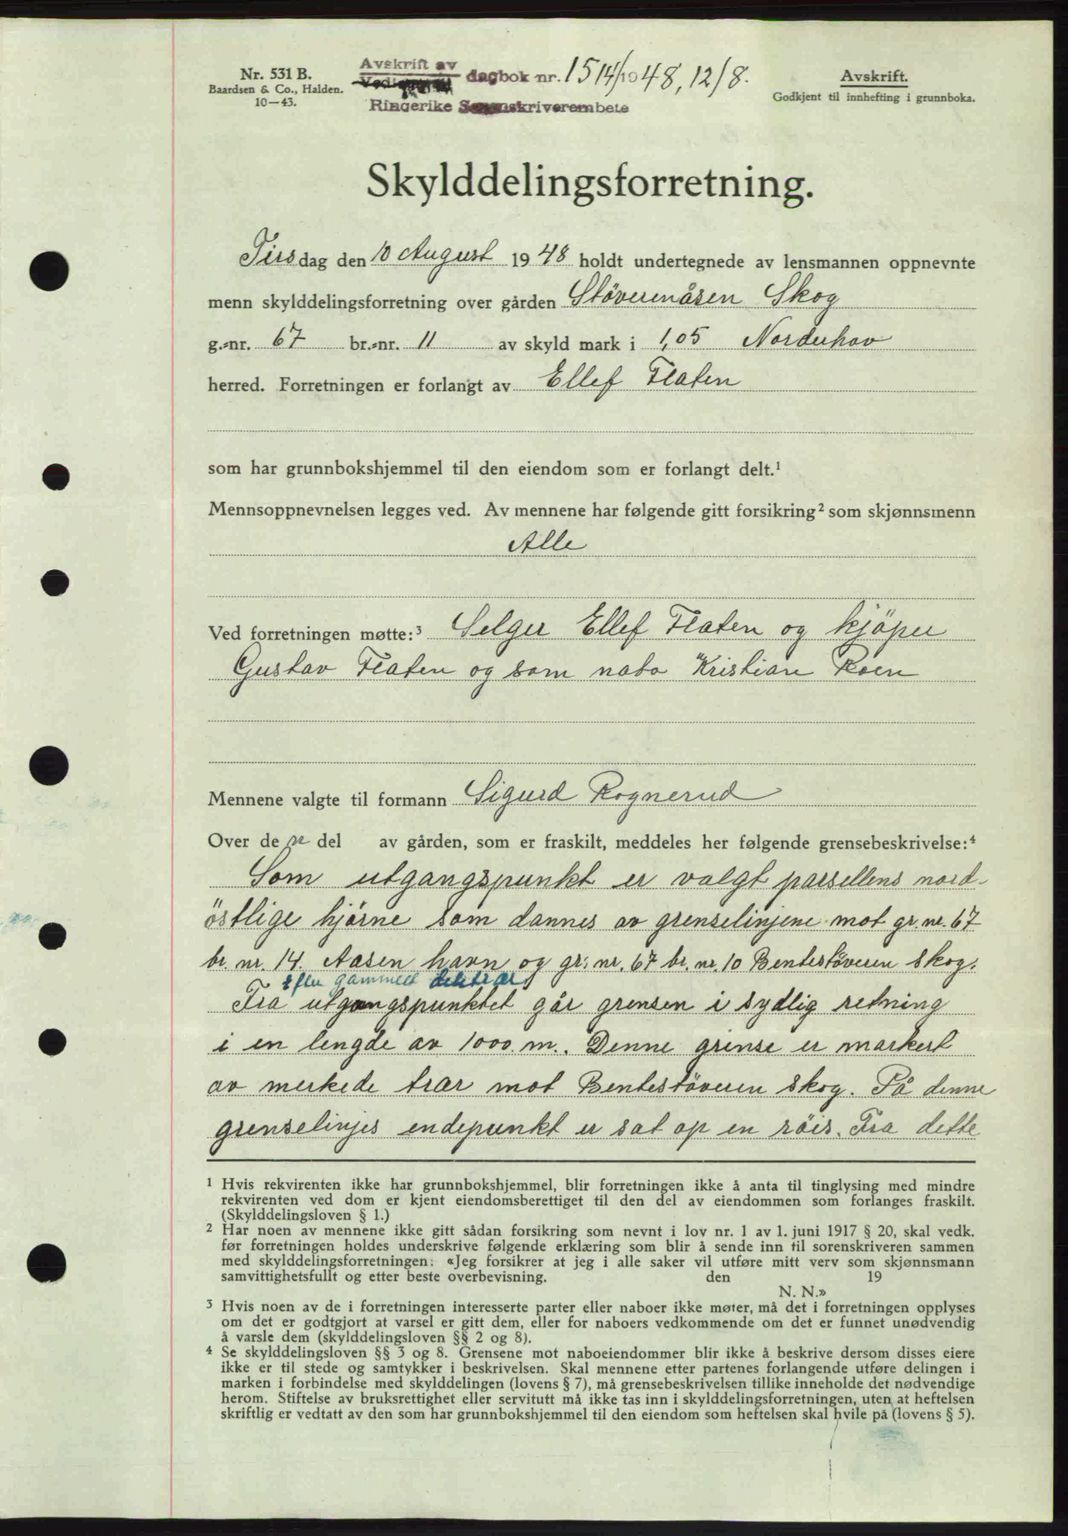 Nr. 531 B.
Baardsen & Co., Halden.
10—43.
Avskrift av
dagbok nr. 1514/1948, 12/8.
Ringerike Sorenskriverembete
Avskrift.
Godkjent til innhefting i grunnboka.
Skylddelingsforretning.
Tirsdag den 10 August 1948 holdt undertegnede av lensmannen oppnevnte
menn skylddelingsforretning over gården Støverenåsen Skog
g.-nr. 67 br.-nr. 11 av skyld mark i 1,05 Norderhov
herred. Forretningen er forlangt av Ellef Flaten
som har grunnbokshjemmel til den eiendom som er forlangt delt.1
Mennsoppnevnelsen legges ved. Av mennene har følgende gitt forsikring2 som skjønnsmenn
Alle
Ved forretningen møtte:3 Selger Ellef Flaten og kjöper
Gustav Flaten og som nabo Kristian Roen
Mennene valgte til formann Sigurd Rognerud
Over den del av gården, som er fraskilt, meddeles her følgende grensebeskrivelse:4
Som utgangspunkt er valgt parsellens nord-
östlige hjörne som dannes av grenselinjene mot gr. nr. 67
br. nr. 14. Aasen havn og gr. nr. 67 br. nr. 10 Bentestöveren skog.
efter gammelt
Fra utgangspunktet går grensen i sydlig retning
i en lengde av 1000 m. Denne grense er markert
av merkede trær mot Bentestöveren skog. På denne
grenselinjes endepunkt er sat op en röis. Fra dette
1 Hvis rekvirenten ikke har grunnbokshjemmel, blir forretningen ikke å anta til tinglysing med mindre
rekvirenten ved dom er kjent eiendomsberettiget til den del av eiendommen som forlanges fraskilt.
(Skylddelingsloven § 1.)
2 Har noen av mennene ikke gitt sådan forsikring som nevnt i lov nr. 1 av 1. juni 1917 § 20, skal vedk.
før forretningen holdes underskrive følgende erklæring som blir å sende inn til sorenskriveren sammen
med skylddelingsforretningen: «Jeg forsikrer at jeg i alle saker vil utføre mitt verv som skjønnsmann
samvittighetsfullt og etter beste overbevisning. den 19
N. N.»
3 Hvis noen av de i forretningen interesserte parter eller naboer ikke møter, må det i forretningen opplyses
om det er godtgjort at varsel er gitt dem, eller for naboers vedkommende om det er funnet unødvendig
å varsle dem (skylddelingsloven §§ 2 og 8).
4 Se skylddelingsloven §§ 3 og 8. Grensene mot naboeiendommer blir ikke å beskrive dersom disses eiere
ikke er til stede og samtykker i beskrivelsen. Skal mennene etter partenes forlangende utføre delingen i
marken i forbindelse med skylddelingen (lovens § 7), må grensebeskrivelsen tillike inneholde det nødvendige
herom. Stiftelse av bruksrettighet eller servitutt må ikke tas inn i skylddelingsforretningen, uten at heftelsen
skriftlig er vedtatt av den som har grunnbokshjemmel til den eiendom som heftelsen skal hvile på (lovens § 5).